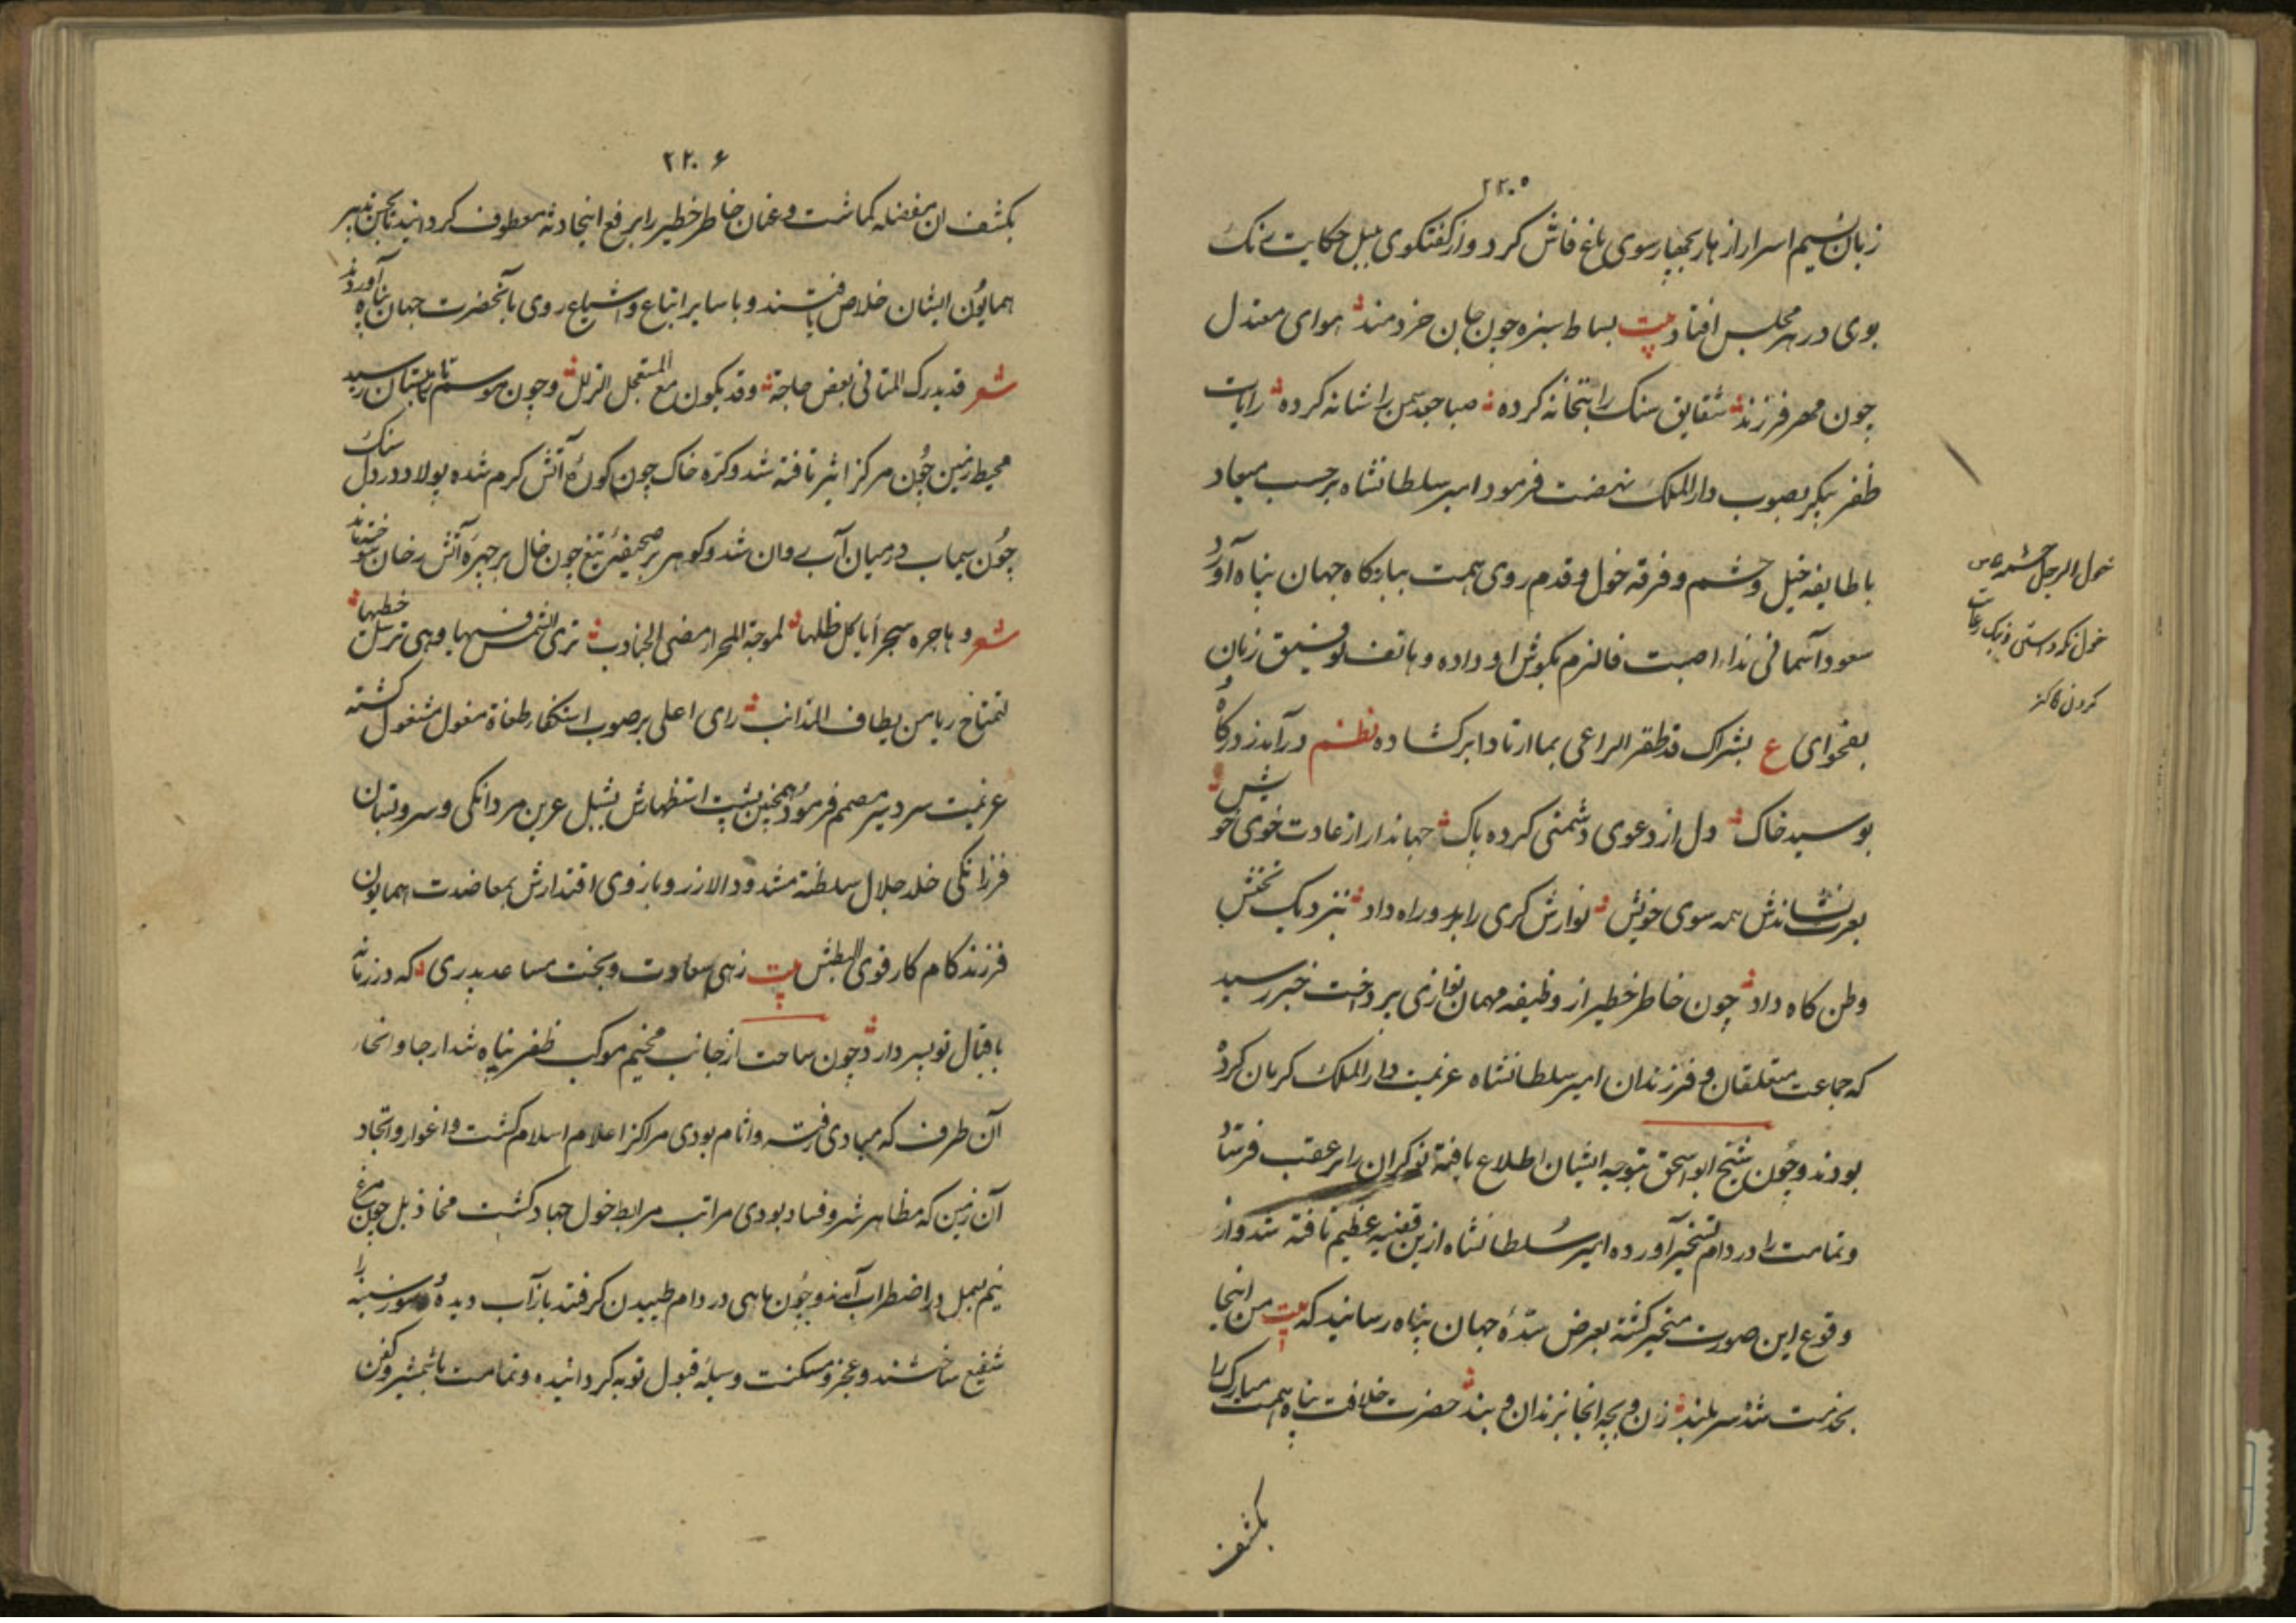 ۲۲۰۵
زبان نسیم اسرار ازهار بچهار سوی باغ فاش کرد و از کفتکوی بلبل حکایت رنک
بوی در هر مجلس افتاد بیت بساط سبزه چون جان خردمند هوای معتدل
چون مهر فرزند شقایق سنک را بتخانه کرده صبا جعد سمن را شانه کرده رایات
ظفر پیکر بصوب دار الملک نهضت فرمود امیر سلطانشاه برحسب میعاد
با طایفه خیل و حشم و فرقه خول و قدم روی همت ببارکاه جهان پناه آورد
سعود آسمانی نداء اصبت فالزم بکوش او داده و هاتف توفیق زبان
بفحوای ع بشراک قد ظفر الراعی بما ارتادا برکشاده نظم درآمد ز درکاه
بوسید خاک دل از دعوی دشمنی کرده پاک جهاندار از عادت خوی خویش
بعزت نشاندش همه سوی خویش نوازش کری را بدو راه داد بنزدیک تختش
وطن کاه داد چون خاطر خطیر از وظیفه مهمان نوازی بپرداخت خبر رسید
که جماعت متعلقان و فرزندان امیر سلطانشاه عزیمت دار الملک کرمان کرده
بودند و چون شیخ ابو اسحق بتوجه ایشان اطلاع یافته نوکران را بر عقب فرستاد
و تمامت را در دام تسخیر آورده امیر سلطانشاه ازین قضیه عظیم تافته شد و از
وقوع این صورت متحیر کشته بعرض سدهٔ جهان پناه رسانید که بیت من اینجا
بخدمت شده سر بلند زن و بچه آنجا بزندان و بند حضرت خلافت پناه همت مبارک را
بکشف
خول الرجل حشمه ص
خول نکو داشتن و نیک رعایت
کردن کنز
۲۲۰۶
بکشف ان معضله کماشت و عنان خاطر خطیر را بر رفع اینحادثه معطوف کردانید تا بحسن تدبیر
همایون ایشان خلاص یافتند و با سایر اتباع و اشیاع روی بآنحضرت جهان پناه آوردند
شعر قد یدرک المتانی بعض حاجته وقد یکون مع المستعجل الزلل و چون موسم تابستان رسید
محیط زمین چون مرکز اثیر تافته شد و کره خاک چون کورهٔ آتش کرم شده پولاد در دل سنک
چون سیماب در میان آب روان شد و کوهر بر صحیفهٔ تیغ چون خال بر چهرهٔ آتش رخان سوختند
شعر و هاجره سجرا یاکل ظلها الجنادب تری الشمس فیها وهی ترسل خیطها
لتمتاح ریا من یطاف المذانب رای اعلی بر صوب استکفار طغاة مغول مشغول کشته
عزیمت سردسیر مصمم فرمود همچنین پشت استظهارش بشبل عرین مردانکی و سرو بستان
فرزانکی خلد جلال سلطنته مشدود الازر و بازوی اقتدارش بمعاضدت همایون
فرزند کام کار قوی البطش بیت زهی سعادت و بخت مساعد پدری که در زمانه
باقبال تو پسر دارد و چون ساحت از جانب مخیم موکب ظفر پناه شد ارجا و انحا
آن طرف که مبادی فتنه و اثام بودی مراکز اعلام اسلام کشت و اغوار و انجاد
آن زمین که مظاهر شر و فساد بودی مراتب مرابط خول جهاد کشت مخاذیل چون مرغ
نیم بسمل در اضطراب آمدند و چون ماهی در دام طپیدن کرفتند باز آب دیده و سوز سینه را
شفیع ساختند و عجز و مسکنت وسیله قبول توبه کردانیده و تمامت با شمشیر و کفن